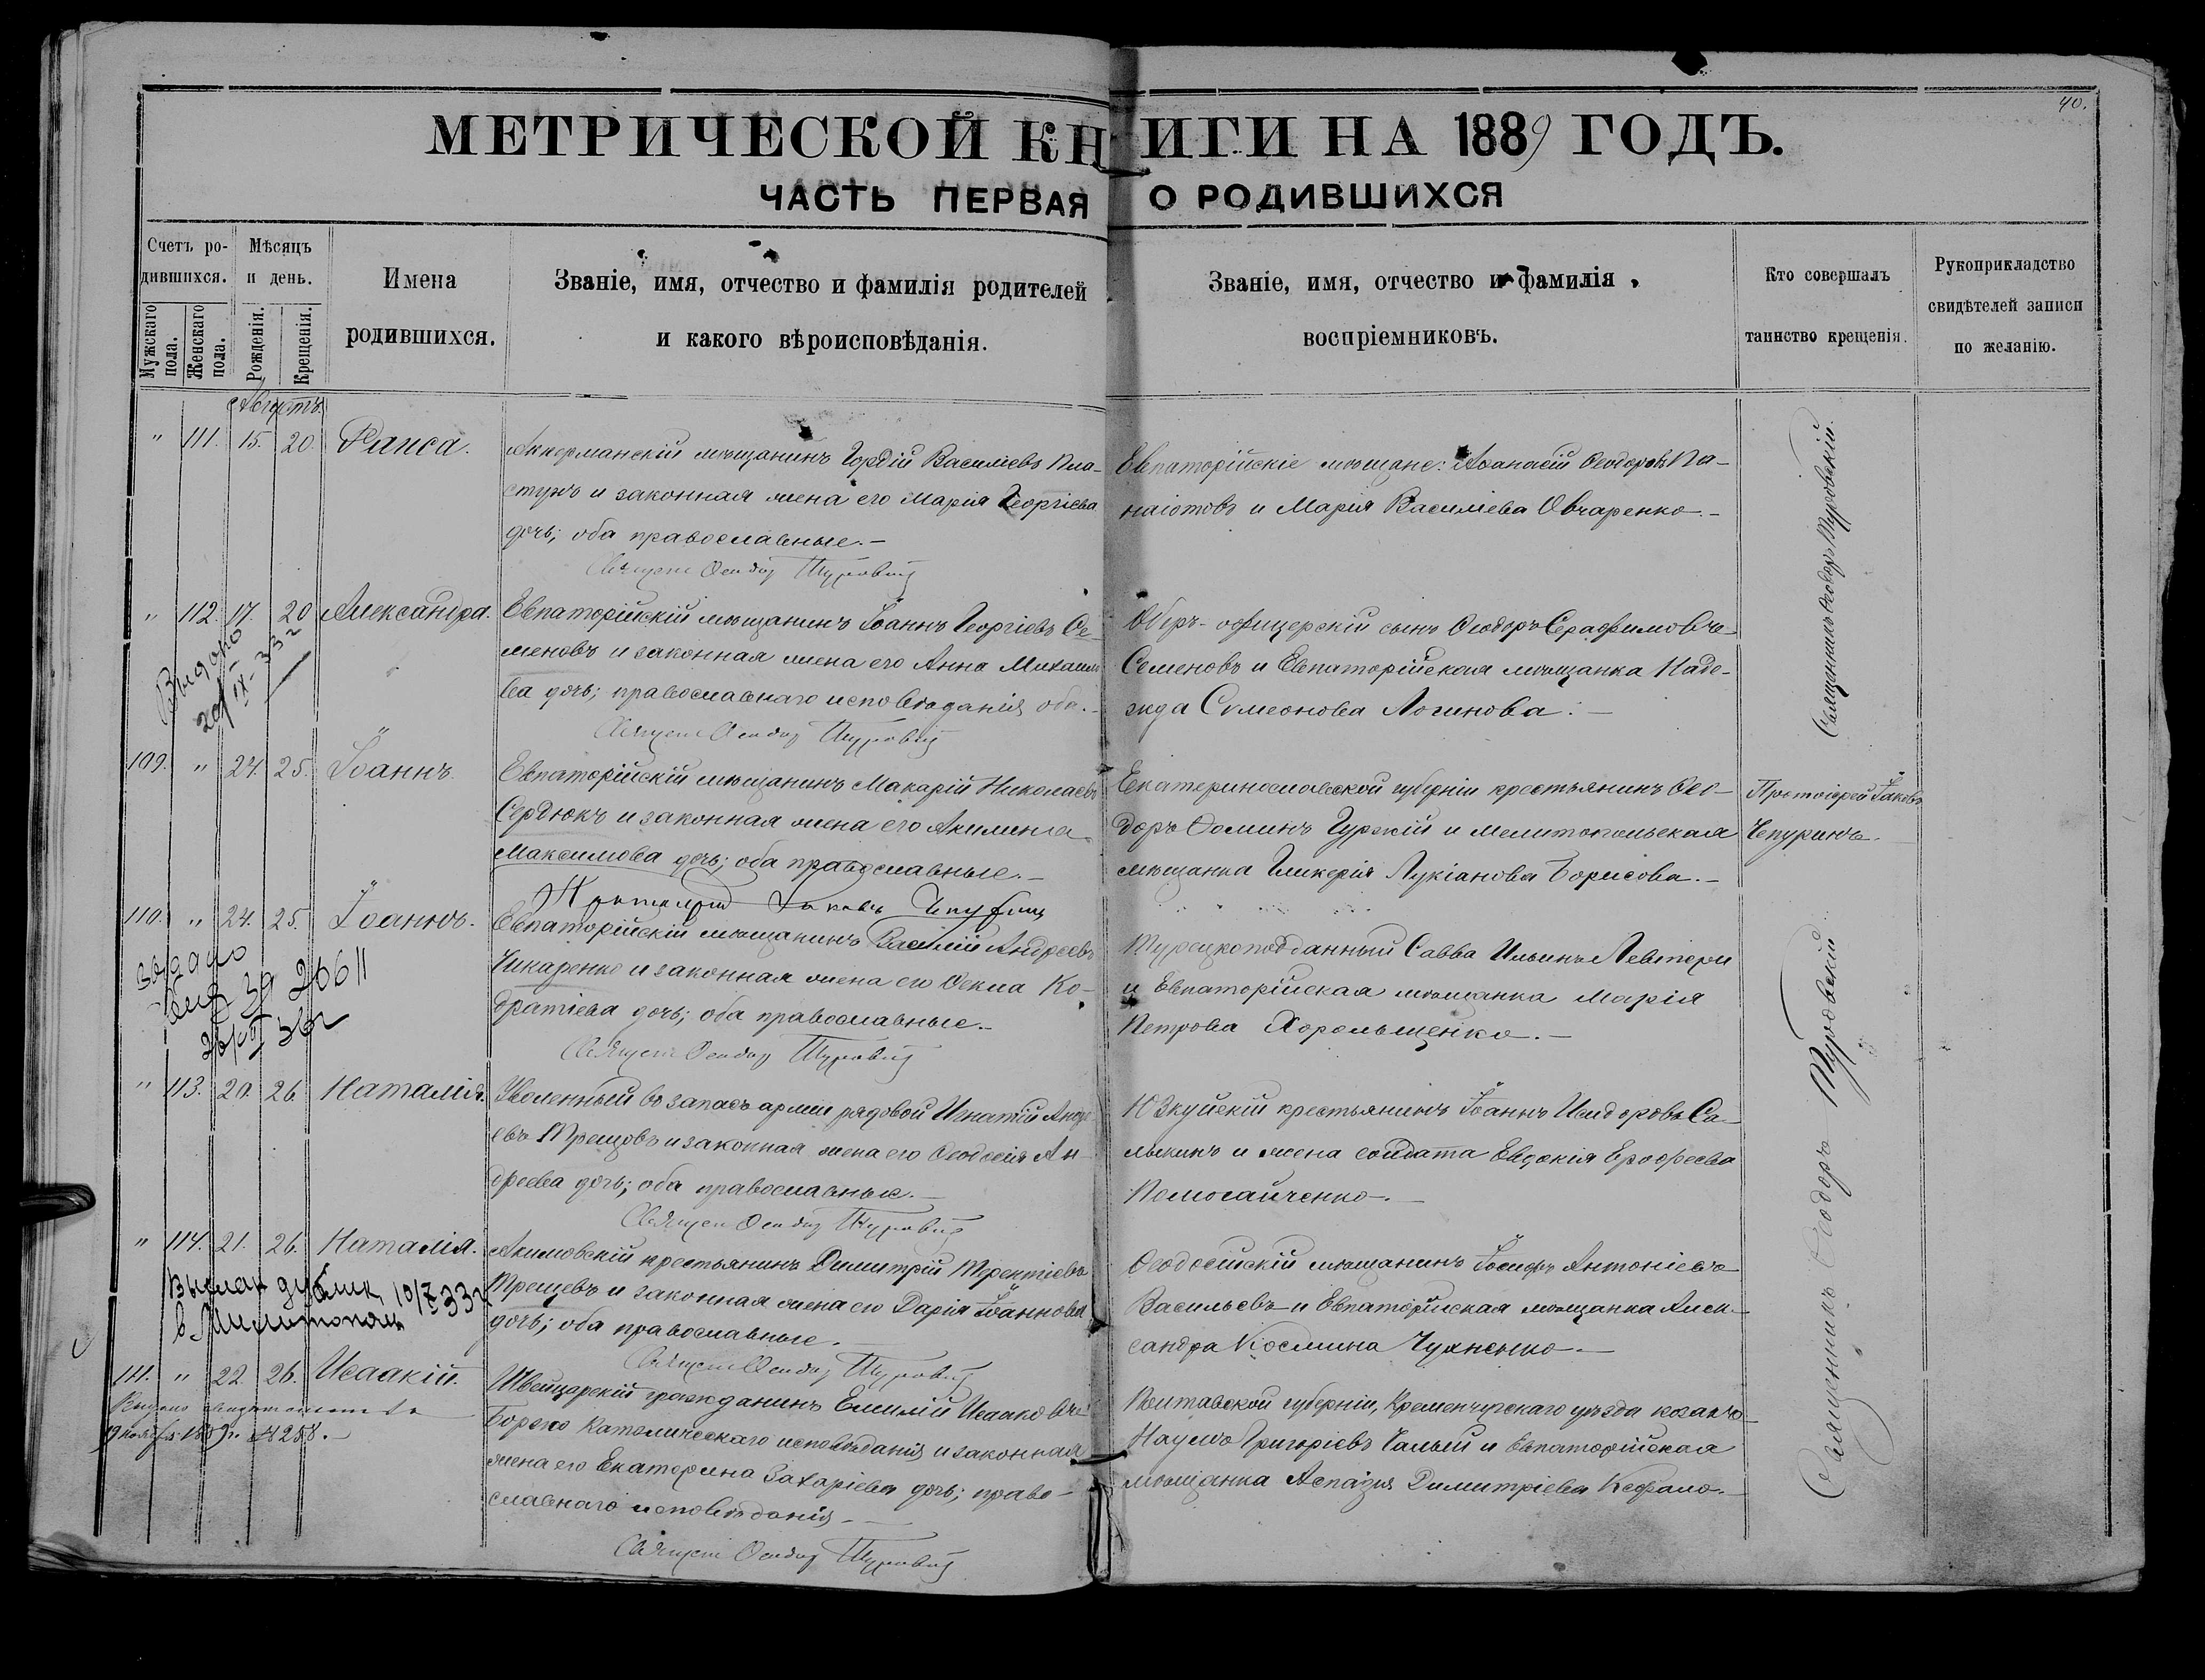 40.
МЕТРИЧЕСКОЙ КНИГИ НА 1889 ГОДЪ.
ЧАСТЬ ПЕРВАЯ О РОДИВШИХСЯ
Счетъ родившихся.
Мужскаго пола.
Женскаго пола.
Мѣсяцъ и день.
Рожденія.
Крещенія.
Имена
родившихся.
Званіе, имя, отчество и фамилія родителей
и какого вѣроисповѣданія.
Званіе, имя, отчество и фамилія
воспріемниковъ.
Кто совершалъ
таинство крещенія.
Рукоприкладство
свидѣтелей записи
по желанію.
Августъ
" 111. 15. 20. Раиса.
Аккерманскій мѣщанинъ Гордій Василіевъ Пла-
стунъ и законная жена его Марія Георгіева
дочь; оба православные.-
Евпаторійскіе мѣщане: Аѳанасій Ѳеодоровъ Па-
наіотовъ и Марія Василіева Овчаренко.-
Священникъ Ѳеодоръ Туровскій.
" 112. 17. 20 Александра.
Евпаторійскій мѣщанинъ Іоаннъ Георгіевъ Се-
меновъ и законная жена его Анна Михаил
ва дочь; православнаго исповѣданія оба.-
Оберъ-офицерскій сынъ Ѳеодоръ Серафимовъ
Семеновъ и Евпаторійская мѣщанка Наде-
жда Симеонова Логинова.-
Выдано
109. " 24. 25. Іоаннъ.
Евпаторійскій мѣщанинъ Макарій Николаевъ
Сердюкъ и законная жена его Акилина
Максимова дочь; оба православные.-
Екатеринославской губерніи крестьянинъ Ѳео-
доръ Ѳоминъ Гуржій и Мелитопольская
мѣщанка Гликерія Лукіанова Борисова.-
Протоіерей Іаковъ
Чепуринъ.
110. " 24. 25. Іоаннъ.
Евпаторійскій мѣщанинъ Василій Андреевъ
Чикаренко и законная жена его Ѳекла Ко-
дратіева дочь; оба православные.-
Турецкоподданный Савва Ильинъ Левтери
и Евпаторійская мѣщанка Марія
Петрова Хорольщенко.-
" 113. 20. 26. Наталія.
Уволенный во запасъ арміи рядовой Игнатій Андре
евъ Трещовъ и законная жена его Ѳеодосія Ан-
дреева дочь; оба православные.-
Юзкуйскій крестьянинъ Іоаннъ Исидоровъ Са-
лыкинъ и жена солдата Евдокія Ерофеева
" 114. 21. 26. Наталія.
Акимовскій крестьянинъ Димитрій Терентіевъ
Трещевъ и законная жена его Дарія Іоаннова
дочь; оба православные.
Ѳеодосійскій мѣщанинъ Іосифъ Антоніевъ
Васильевъ и Евпаторійская мѣщанка Алек-
сандра Косьмина Чухненко.-
111. " 22. 26. Исаакій.
Швейцарскій гражданинъ Емилій Исааковъ
Борежо католическаго исповѣданія и законная
жена его Екатерина Захаріева дочь; право-
славнаго исповѣданія.-
Полтавской губерніи, Кременчугскаго уѣзда козакъ
Наумъ Григоріевъ Галый и Евпаторійская
мѣщанка Аспазія Димитріева Кефало.-
Священникъ Ѳеодоръ Туровскій